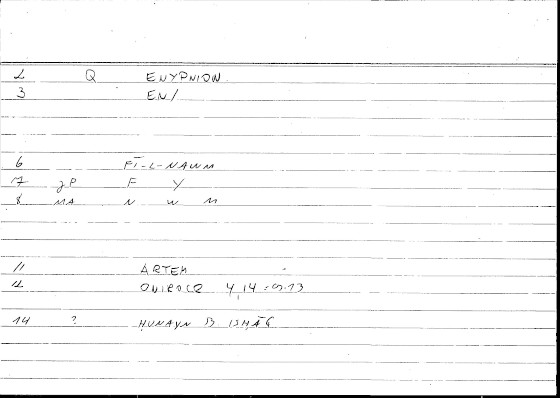 2 Q ENYPNION
3 EN/
6 FĪ-L-NAWM
7 gP F Y
8 MA N W M
11 ARTEM
12 ONIROCR 4,14
14 ? HUNAYN B ISḤĀQ